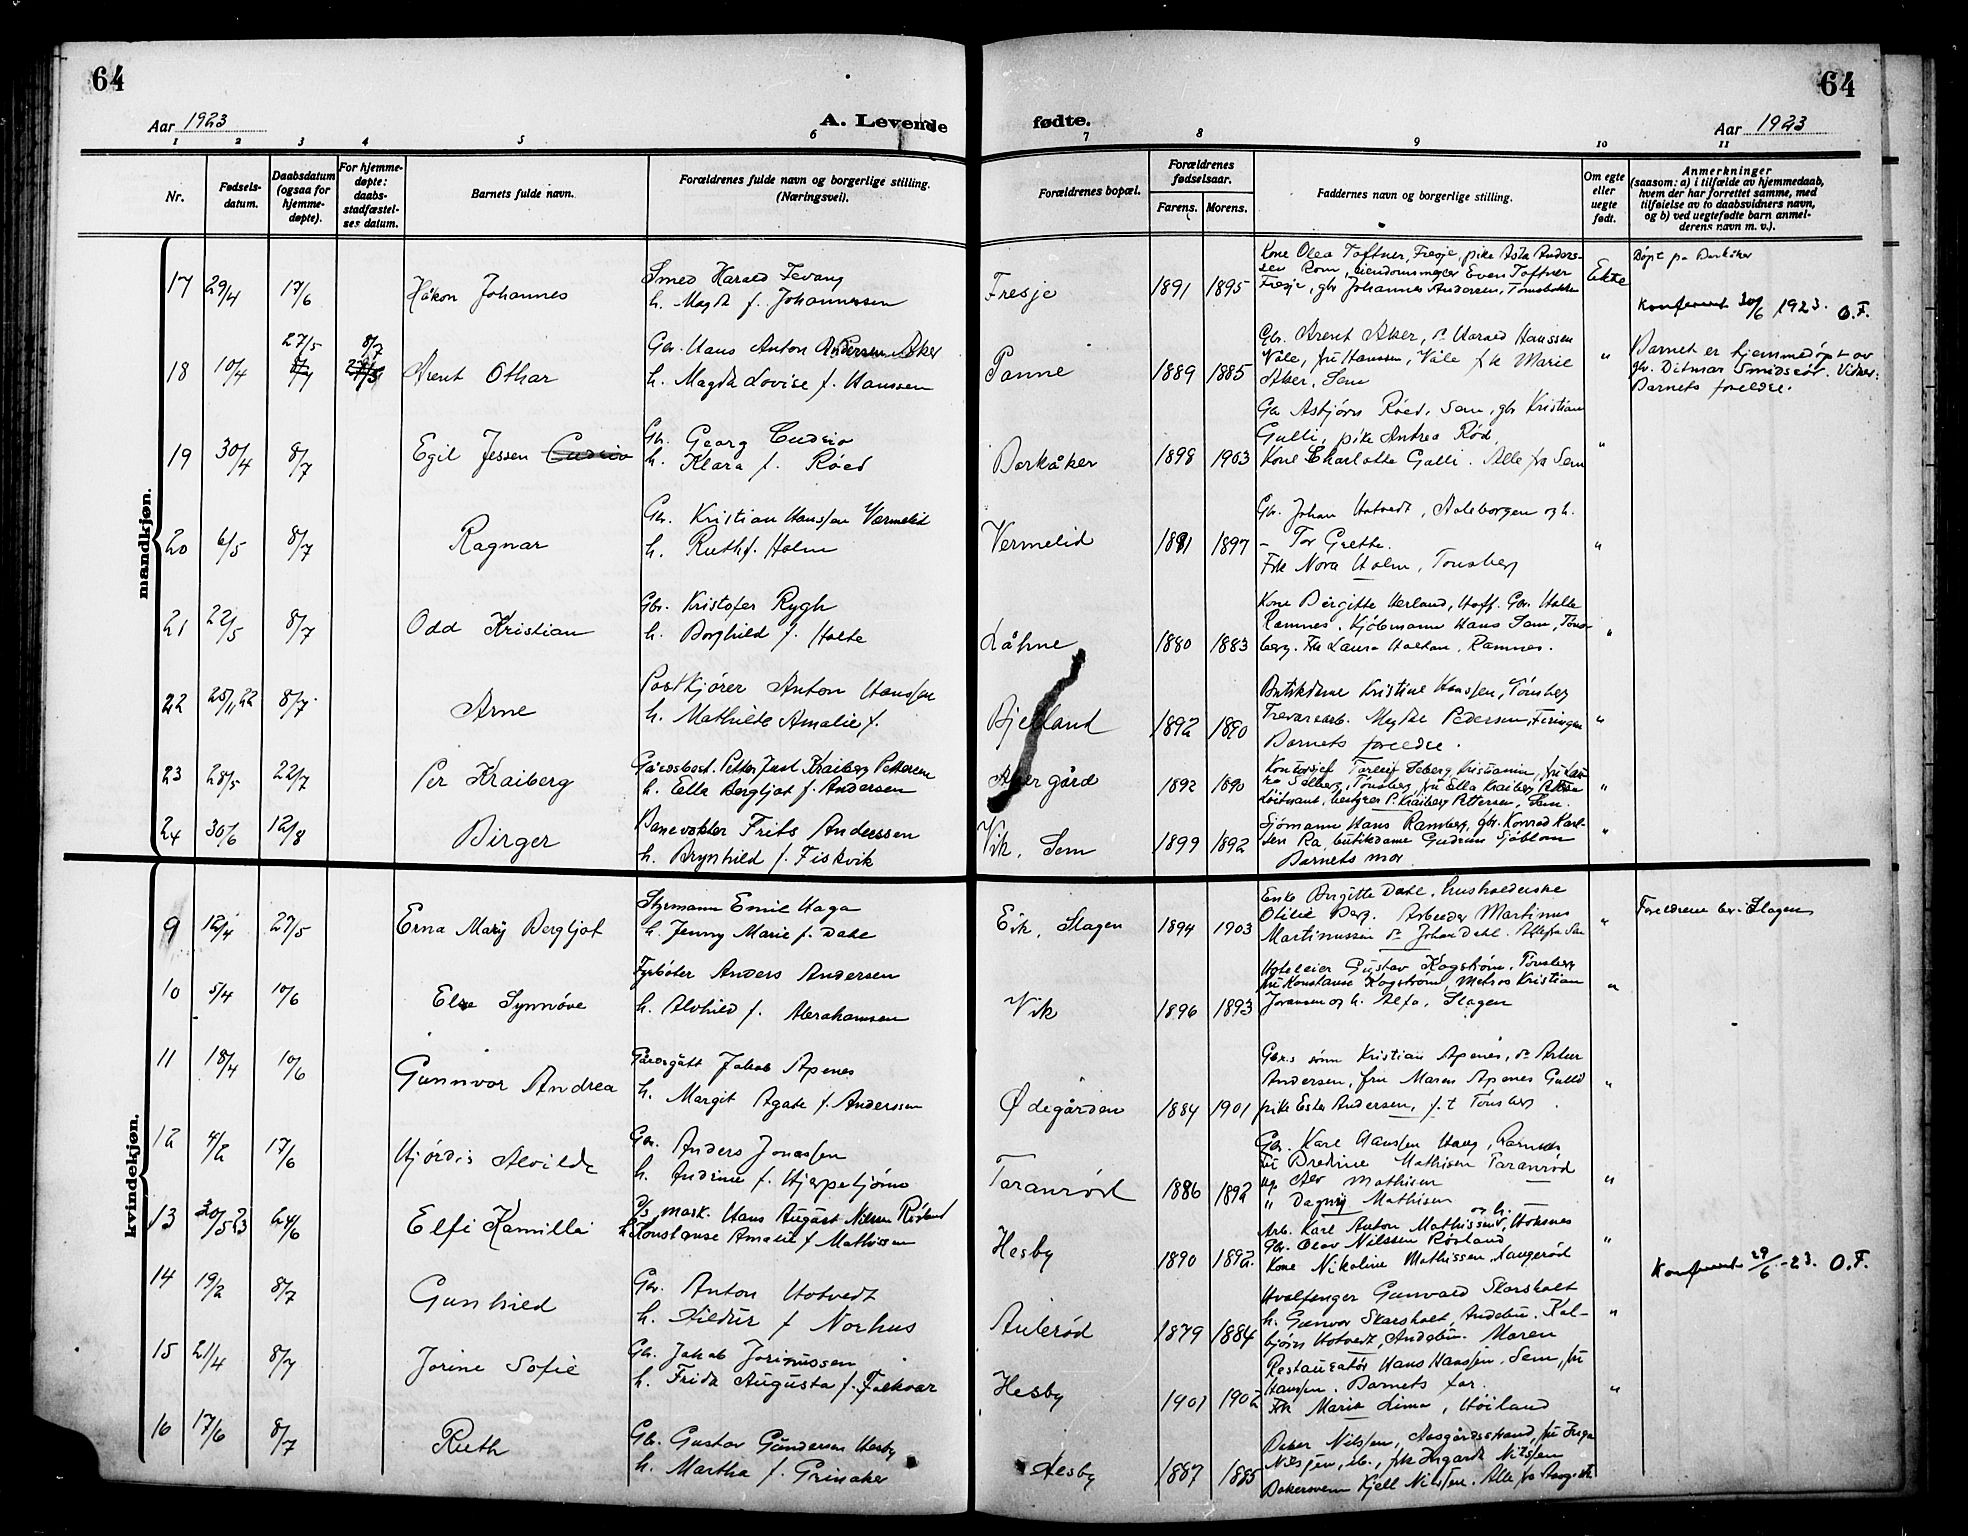 64
64
Aar 1923
A. Levende
fødte.
Aar 1923
1 2 3 4 5 6 7 8 9 10 11
Nr.
Fødsels-
datum.
Daabsdatum
(ogsaa for
hjemme-
døpte).
For hjemme-
døpte:
daabs-
stadfæstel-
ses datum.
Barnets fulde navn.
Forældrenes fulde navn og borgerlige stilling.
(Næringsvei).
Forældrenes bopæl.
Forældrenes
fødselsaar.
Farens. Morens.
Faddernes navn og borgerlige stilling.
Om egte
eller
uegte
født.
Anmerkninger
(saasom: a) i tilfælde av hjemmedaab,
hvem der har forrettet samme, med
tilføielse av to daabsvidners navn,
og b) ved uegtefødte barn anmel-
derens navn m. v.).
mandkjøn.
17 29/4 17/6 Håkon Johannes
Smed Harald Jevang
h. Magda f. Johannessen
Fresje 1891 1895
Kone Olea Toftner, Fresje, pike Asta Anders-
sen Rom, eiendomsmegler Even Toftner
Fresje, gbr Johannes Andersen,
Ekte
Døpt på Barkåker
Konferert 30/6 1923. O.F.
18 10/4 27/5 8/7 8/7 27/5 Arent Othar
Gbr. Hans Anton Andersen Aker
h. Magda Lovise f. Hanssen
Panne 1889 1885
Gbr. Arent Aker, do Harald Hanssen
Våle, fru Hanssen, Våle frk Marie
Aker, Sem
"
Barnet er hjemmedøpt av
gbr. Ditmar Smidsrød. Vidner:
Barnets foreldre.
19 30/4 8/7 Egil Jessen
Gbr. Georg
h. Klara f. Røed
Barkåker 1898 1903
Gbr Asbjørn Røed, Sem, gbr Kristian
Gulli, pike Andrea Rød,
Kone Charlotte Gulli. Alle fra Sem
"
20 6/5 8/7 Ragnar
Gbr. Kristian Hanssen Værmelid
h. Ruth f. Holm
Vermelid 1891 1897
Gbr. Johan Hotvedt, Aaleborgen og h.
- Tor Grette.
Frk Nora Holm, Tønsberg
"
21 22/5 8/7 Odd Kristian
Gbr. Kristofer Rygh
h. Borghild f. Holte
Låhne 1880 1883
Kone Birgitte Herland, Hoff. Gbr. Holte
Ramnes. Kjøbmann Hans Sem, Tøns-
berg. Frk Laura Holtan, Ramnes.
"
22 25/11 22 8/7 Arne
Postkjører Anton Hanssen
h. Mathilde Amalie f.
Bjelland 1892 1890
Butikdame Kristine Hanssen, Tønsberg
Trevarearb. Magda Pedersen,
Barnets foreldre.
"
23 28/5 22/7 Per Kraiberg
Gårdsbest. Petter Juul Kraiberg Pettersen
h. Ella Bergljot f. Andersen
Akergård 1892 1890
Kontorsjef Torleif Seberg, Kristiania, fru
Solberg, Tønsberg, fru Ella Kraiberg Pettersen
Løitnant, bestyrer P. Kraiberg Pettersen, Sem.
"
24 30/6 12/8 Birger
Banevokter Frits Anderssen
h. Brynhild f. Fiskvik
Vik, Sem 1899 1892
Sjømann Hans Ramberg, gbr. Konrad Karl-
sen Ra, butikdame Gudrun Sjøblom
Barnets mor
"
kvindekjøn.
9 12/4 27/5 Erna Mary Bergljot
Styrmann Emil Haga
h. Jenny Marie f. Dahl
Eik, Slagen 1894 1903
Enke Birgitte Dahl, husholderske
Otilie Berg. Arbeider Martinus
Martinussen do Johan Dahl. Alle fra Sem
"
Foreldrene bor i Slagen
10 5/4 10/6 Else Synnøve
Fyrbøter Anders Andersen
h. Alvhild f. Abrahamsen
Vik 1896 1893
Hoteleier Gustav Kogstrøm, Tønsberg
fru Konstanse Kogstrøm, Matros Kristian
Joransen og h. Alfa, Slagen
"
11 18/4 10/6 Gunnvor Andrea
Jakob Apenes
h. Margit Agate f. Anderssen
Ødegården 1884 1901
Gbr.s sønn Kristian Apenes, do Artur
Andersen, fru Maren Apenes Gulli
pike Ester Andersen, f. t Tønsberg.
"
12 4/2 17/6 Hjørdis Alvilde
Gbr. Anders Jonassen
h. Andrine f. Hjerpetjønn
Taranrød 1886 1892
Gbr. Karl Hanssen Haug, Ramnes
fru Bredine Mathisen Taranrød
Mathisen
" Dagny Mathisen
"
13 30/5 23 24/6 Elfi Kamilla
mask. Hans August Nilsen Røsland
h. Konstanse Amalie f Mathissen
Hesby 1890 1892.
og h.
Arb. Karl Anton Mathissen, Hoksnes
Gbr. Olav Nilssen Røsland
Kone Nikoline Mathissen, Haugerød
"
Konferert 29/6 - 23. O.F.
14 19/2 8/7 Gunhild
Gbr. Anton Hotvedt
h. Hildur f Norhus
Aulerød 1879 1884
Hvalfanger Gunvald Skarsholt
h. Gunvor Skarsholt, Andebu. Kol-
bjørn Hotvedt, Andebu. Maren
"
15 21/4 8/7 Jorine Sofie
Gbr. Jakob Jorinussen
h. Frida Augusta f. Falkvar
Hesby 1901 1902
Restauratør Hans Hanssen. Sem, fru
Hanssen. Barnets far.
Frk Marie Lima, Høiland
"
16 17/6 8/7 Ruth
Gbr. Gustav Gundersen Hesby
h. Martha f. Grinaker
Hesby 1887 1885
Baker Nilssen, Aasgårdsstrand, fru Inga
Nilssen, ib., frk Ingarda Nilssen
Bakersvenn Kjell Nilssen. Alle fra